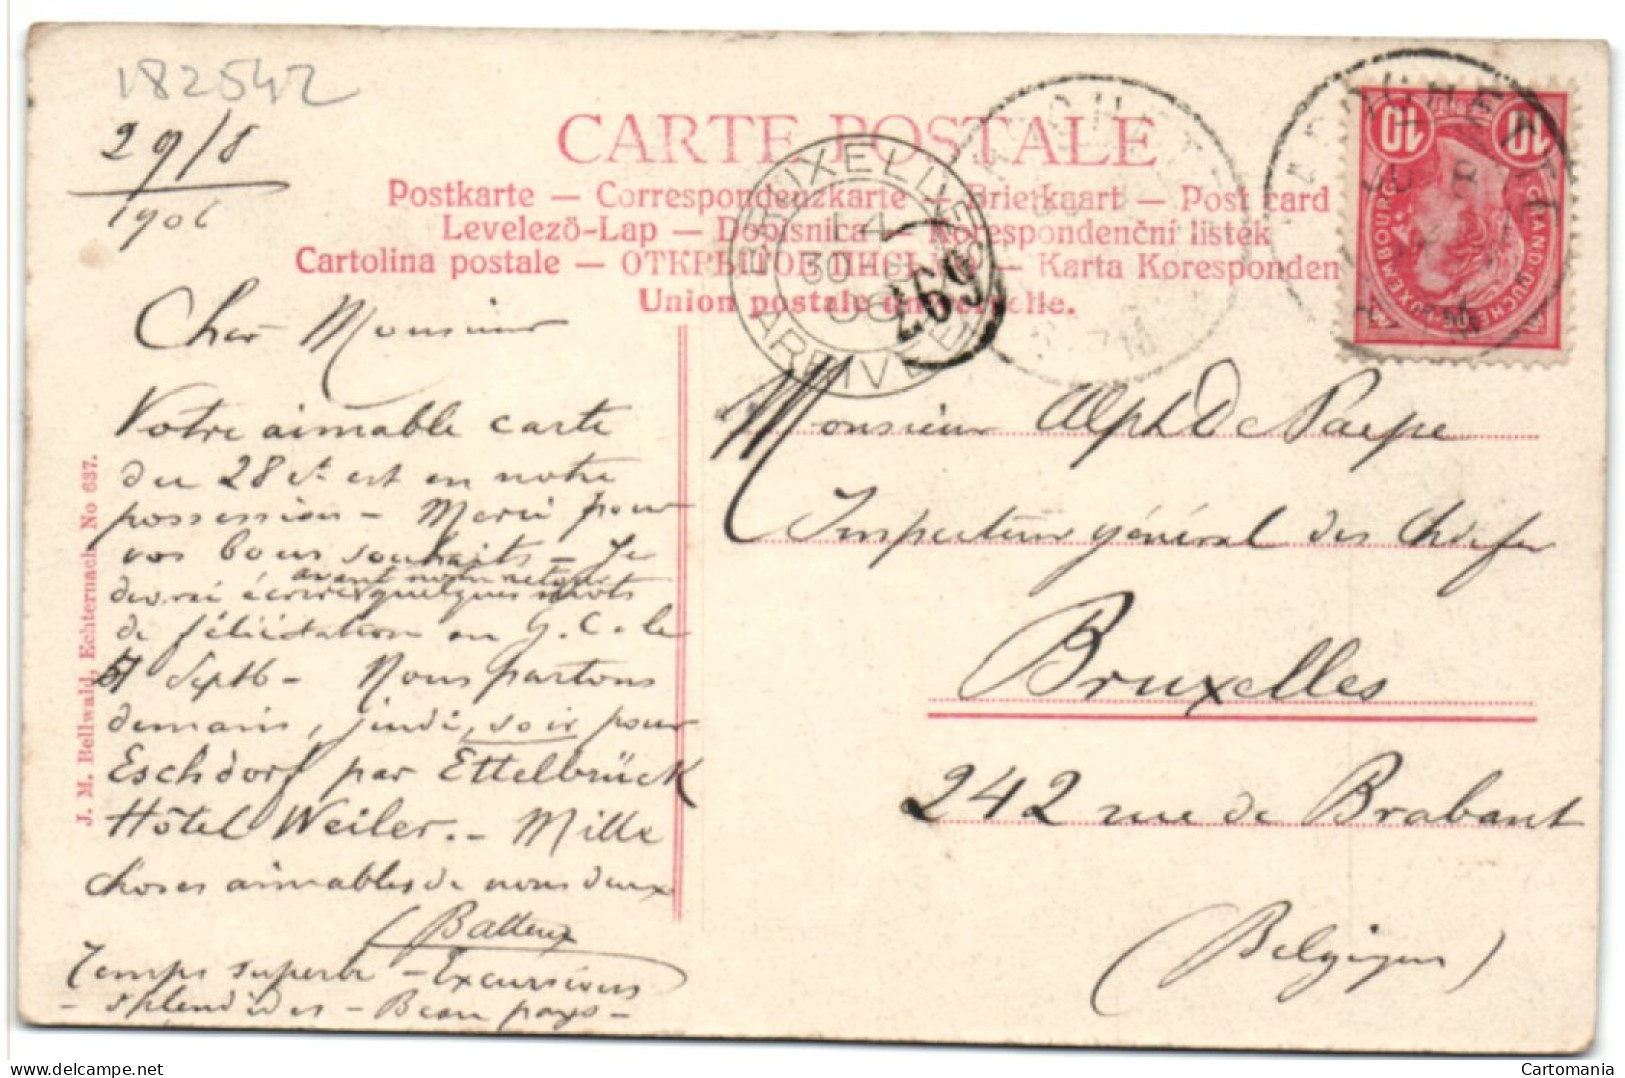 182542
29/8
1906
CARTE POSTALE
Postkarte — Correspondenzkarte — Briefkaart — Post card
Levelező-Lap — Dopisnica — Korespondenční listek
Cartolina postale — ОТКРЫТОЕ ПИСЬМО — Karta Koresponden
Union postale universelle.
BRUXELLES
14
30-
06
ARRIVEE
269
GRAND-DUCHÉ DE LUXEMBOURG
10 10
Cher Monsieur
Votre aimable carte
du 28 ct est en notre
possession — Merci pour
vos bons souhaits — Je
avant notre retour
devrai écrire quelques mots
de félicitation en G. C. le
Septb — Nous partons
demain, jeudi, soir pour
Eschdorf par Ettelbrück
Hôtel Weiler. — Mille
choses aimables de nous deux
Temps superbe — Excursions
— splendides — Beau pays —
Monsieur Alph De Paepe
Inspecteur général des Ch de fer
Bruxelles
242 rue de Brabant
(Belgique)
J. M. Bellwald, Echternach No 637.
Cartomania